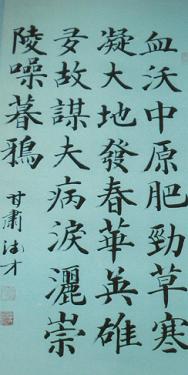 血沃中原肥勁草寒
凝大地發春華英雄
多故謀夫病淚灑崇
陵噪暮鴉
甘肅